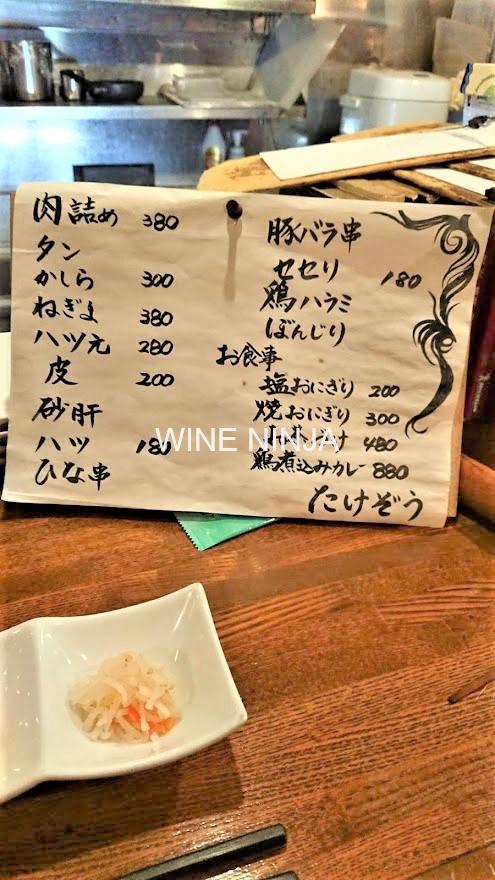 肉詰め 380
タン
かしら 300
ねぎま 380
ハツ元 280
皮 200
砂肝
ハツ 180
ひな串
豚バラ串
セセリ 180
鶏ハラミ
ぼんじり
お食事
塩おにぎり 200
焼おにぎり 300
け 480
鶏煮込みカレー 880
たけぞう
WINE NINJA